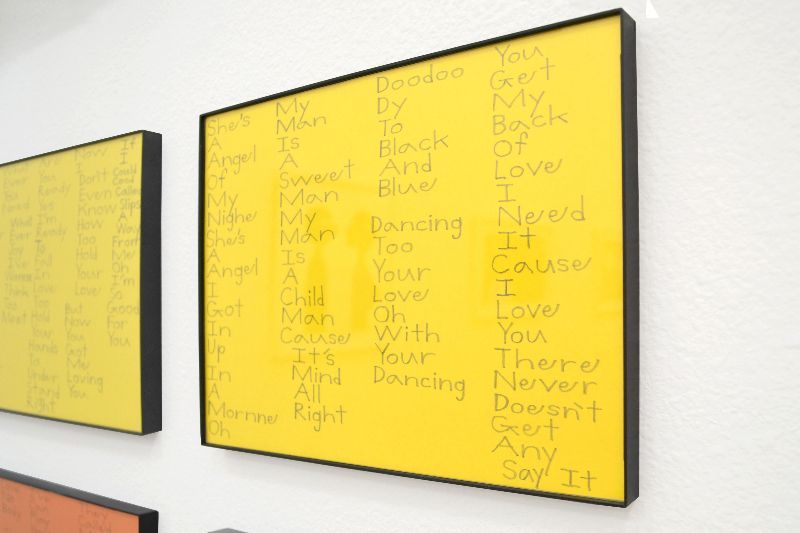 Are
You
Ready
I'm
Ready
To
In
Love
Too
Hold
Your
Hands
To
Under
Stand
Right
Now
I
Don't
Even
Know
How
Too
Hold
Your
Love
But
Now
You
Got
Me
Loving
You
If
I
Could
Slips
A
Way
From
Me
Oh
I'm
So
Good
For
You
She's
A
Angel
Of
My
Nighe
She's
A
Angel
I
Got
In
Up
In
A
Mornne
Oh
My
Man
Is
A
Sweet
Man
My
Man
Is
A
Child
Man
Cause
It's
Mind
All
Right
Doodoo
Dy
To
Black
And
Blue
Dancing
Too
Your
Love
Oh
With
Your
Dancing
You
Get
My
Back
Of
Love
I
Need
It
Cause
I
Love
You
There
Never
Doesn't
Get
Any
Say It